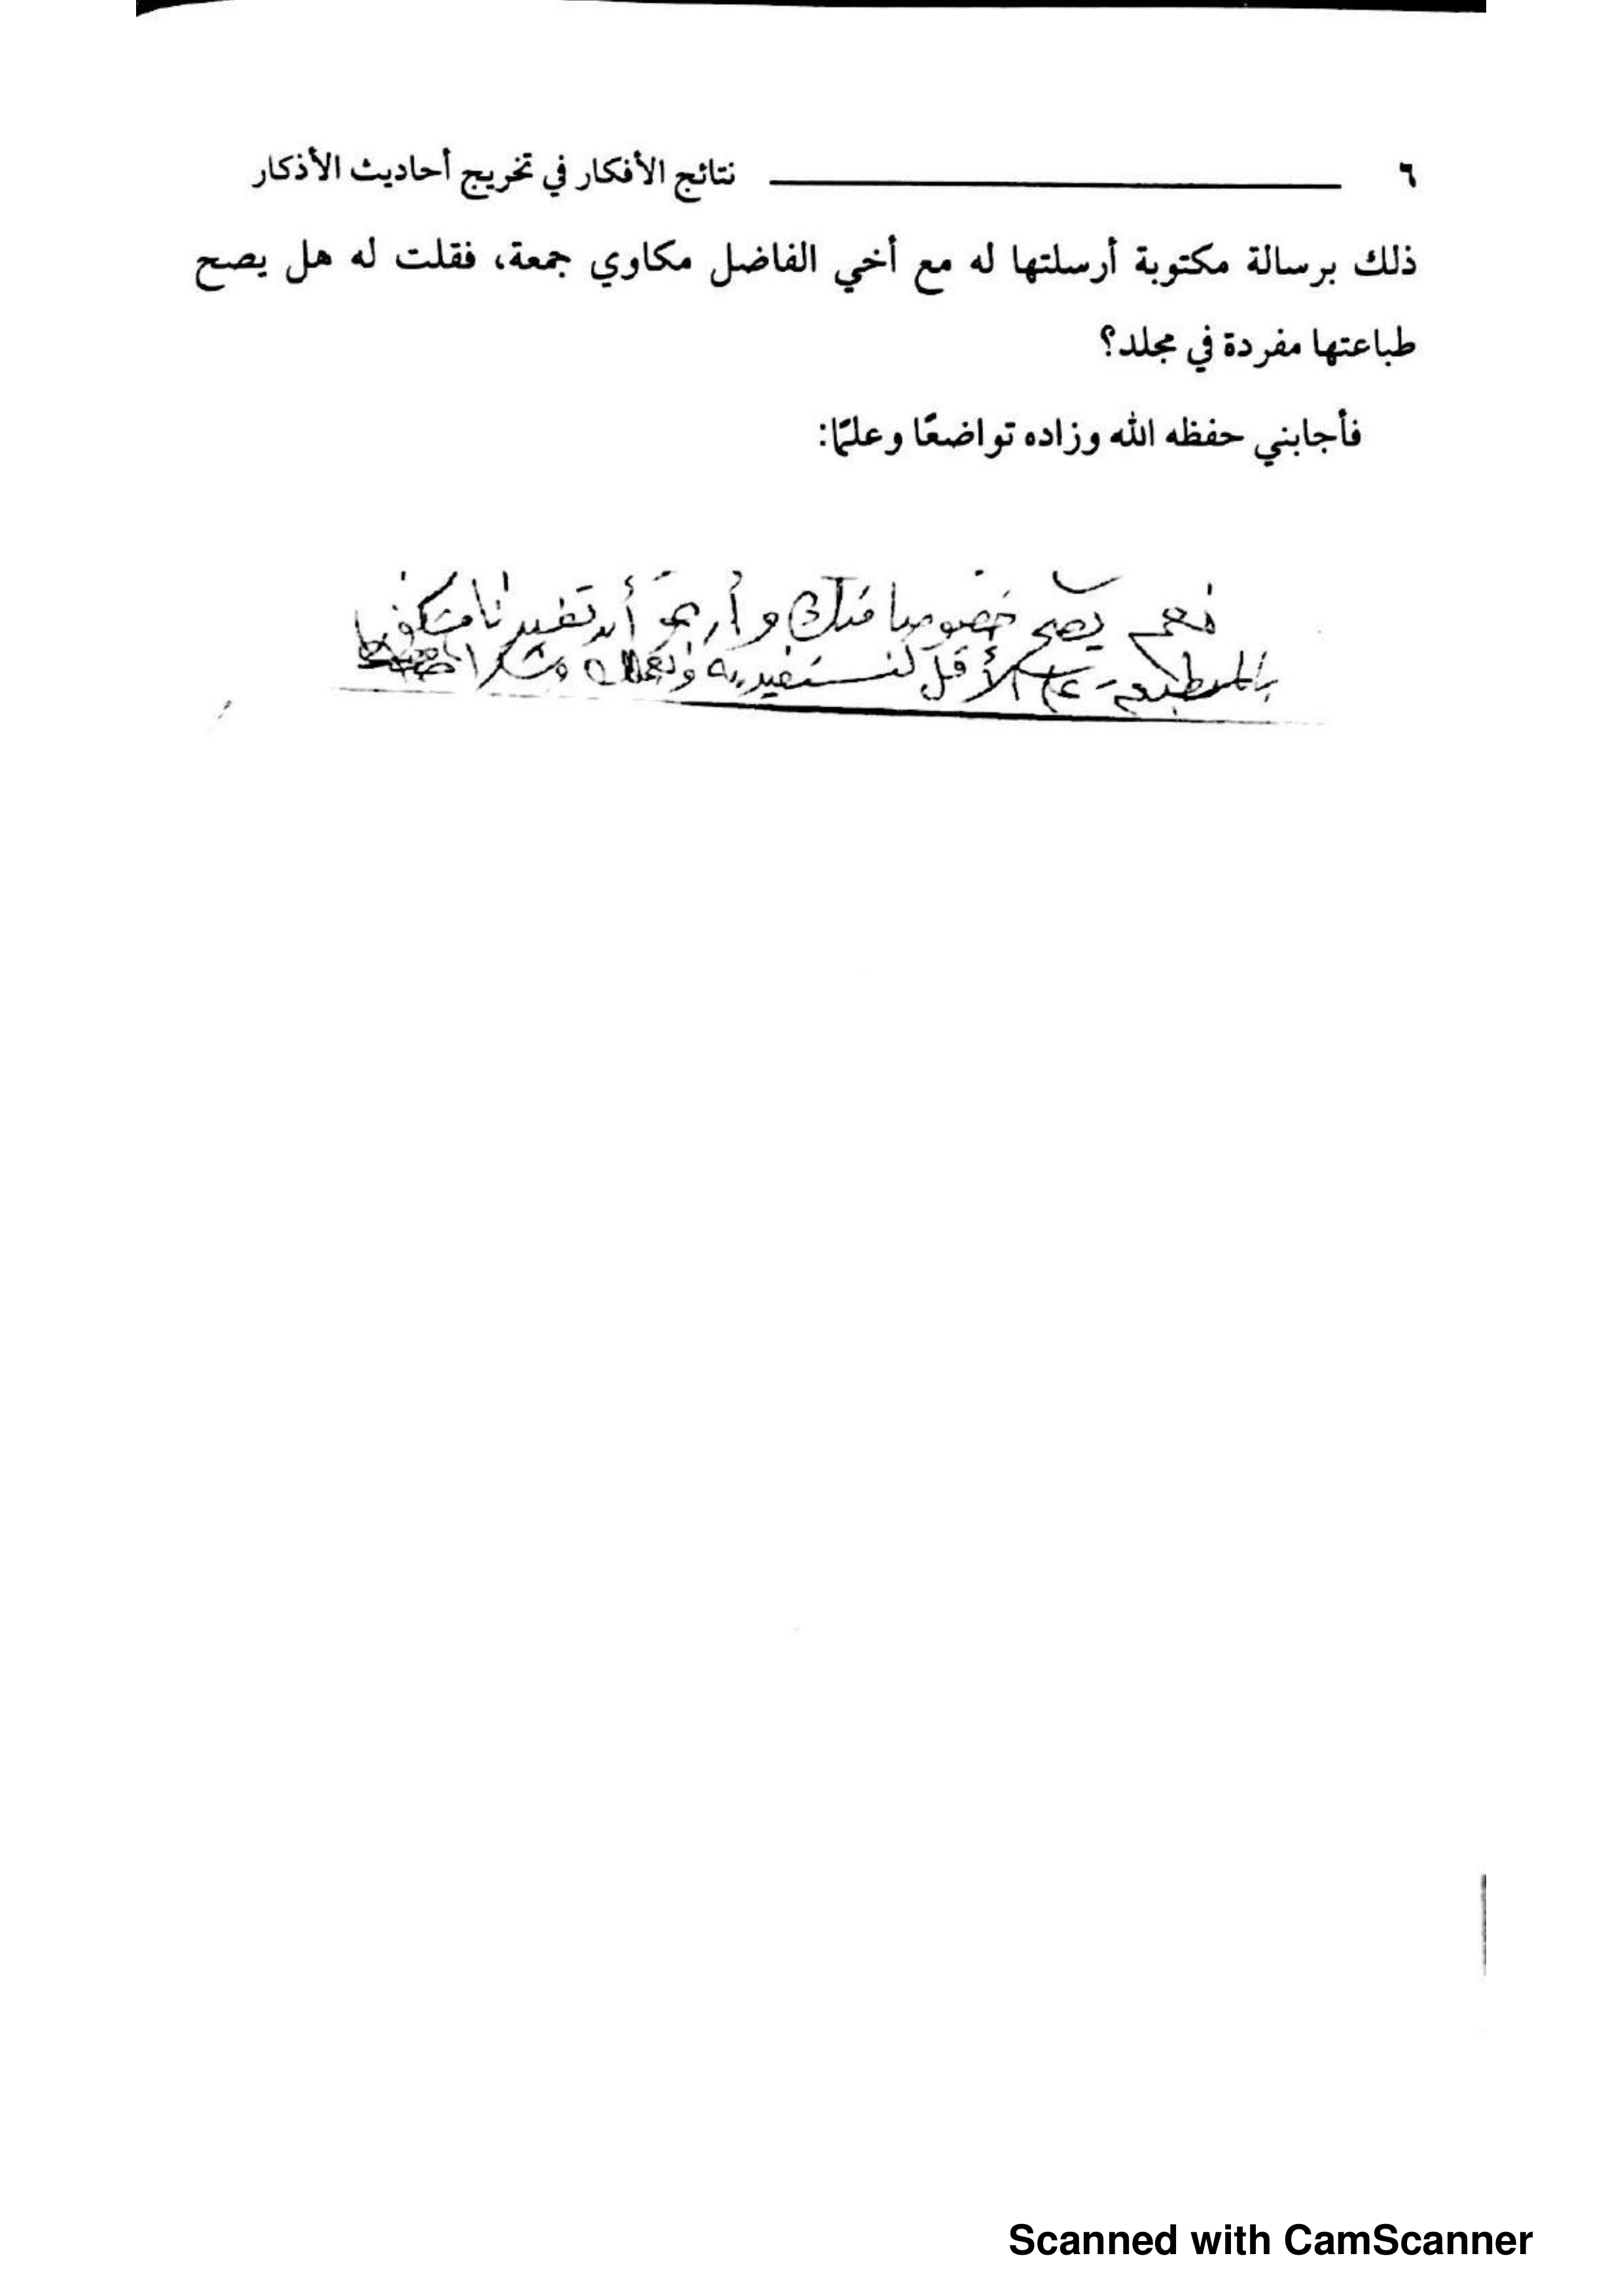 ٦ نتائج الأفكار في تخريج أحاديث الأذكار
ذلك برسالة مكتوبة أرسلتها له مع أخي الفاضل مكاوي جمعة، فقلت له هل يصح
طباعتها مفردة في مجلد؟
فأجابني حفظه الله وزاده تواضعًا وعلمًا:
نعم يصح خصوصا منك وأرجو أن تفيدنا مشكورا
بالمطبوع على الأقل لنستفيد به
Scanned with CamScanner